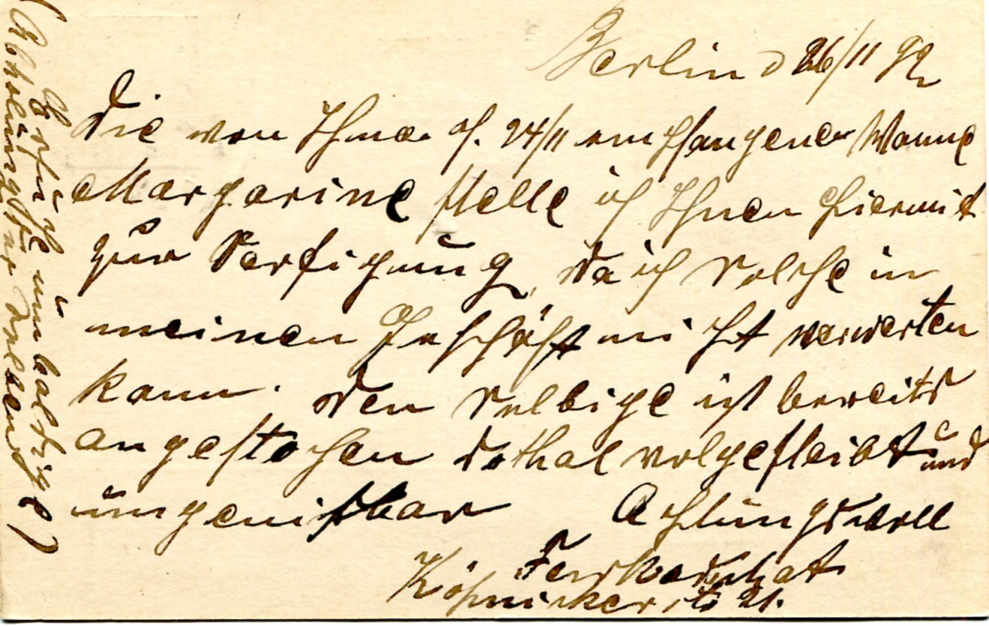 Berlin d 26/11 92
Die von Ihnen p. 24/11 empfangene Wanne
Margarine stelle ich Ihnen hiermit
zur Verfigung, da ich solche in
meinen Geschäft nicht verwerten
kann. Den selbige ist bereits
angestochen total und
ungenisbar Achtungsvoll
Köpnickerstr 21.
(Ich ersuche um baldige
Abholung der selben)